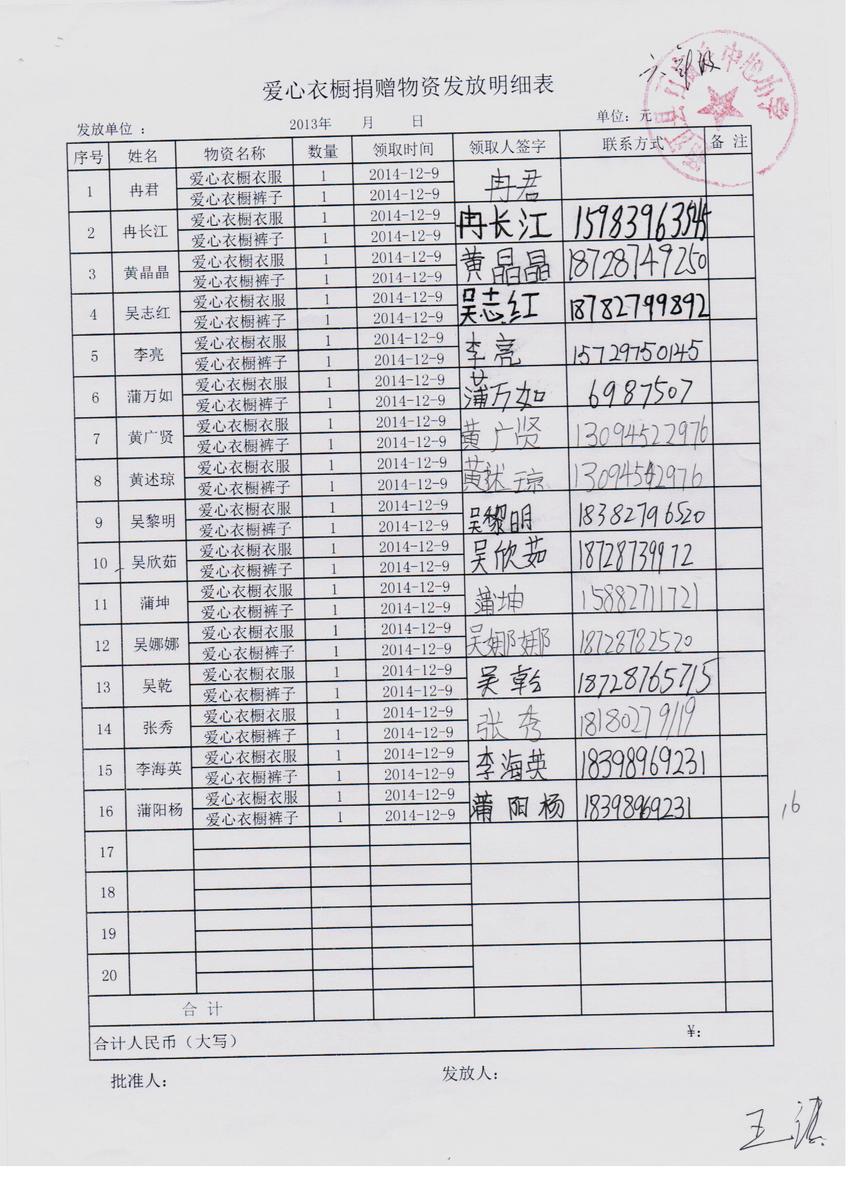 爱心衣橱捐赠物资发放明细表
发放单位 ： 2013年 月 日 单位：元
序号 姓名 物资名称 数量 领取时间 领取人签字 联系方式 备 注
1 冉君 爱心衣橱衣服 1 2014-12-9 冉君
爱心衣橱裤子 1 2014-12-9
2 冉长江 爱心衣橱衣服 1 2014-12-9 冉长江 15983963545
爱心衣橱裤子 1 2014-12-9
3 黄晶晶 爱心衣橱衣服 1 2014-12-9 黄晶晶 18728749250
爱心衣橱裤子 1 2014-12-9
4 吴志红 爱心衣橱衣服 1 2014-12-9 吴志红 18782799892
爱心衣橱裤子 1 2014-12-9
5 李亮 爱心衣橱衣服 1 2014-12-9 李亮 15729750145
爱心衣橱裤子 1 2014-12-9
6 蒲万如 爱心衣橱衣服 1 2014-12-9 蒲万如 6987507
爱心衣橱裤子 1 2014-12-9
7 黄广贤 爱心衣橱衣服 1 2014-12-9 黄广贤 13094522976
爱心衣橱裤子 1 2014-12-9
8 黄述琼 爱心衣橱衣服 1 2014-12-9 黄述琼
爱心衣橱裤子 1 2014-12-9
9 吴黎明 爱心衣橱衣服 1 2014-12-9 吴黎明 18382796520
爱心衣橱裤子 1 2014-12-9
10 吴欣茹 爱心衣橱衣服 1 2014-12-9 吴欣茹
爱心衣橱裤子 1 2014-12-9
11 蒲坤 爱心衣橱衣服 1 2014-12-9 蒲坤 15882711721
爱心衣橱裤子 1 2014-12-9
12 吴娜娜 爱心衣橱衣服 1 2014-12-9 吴娜娜 18728782520
爱心衣橱裤子 1 2014-12-9
13 吴乾 爱心衣橱衣服 1 2014-12-9 吴乾 18728765715
爱心衣橱裤子 1 2014-12-9
14 张秀 爱心衣橱衣服 1 2014-12-9 张秀 18180279119
爱心衣橱裤子 1 2014-12-9
15 李海英 爱心衣橱衣服 1 2014-12-9 李海英 18398969231
爱心衣橱裤子 1 2014-12-9
16 蒲阳杨 爱心衣橱衣服 1 2014-12-9 蒲阳杨 18398969231
爱心衣橱裤子 1 2014-12-9
16
17
18
19
20
合 计
合计人民币（大写） ¥：
批准人： 发放人：